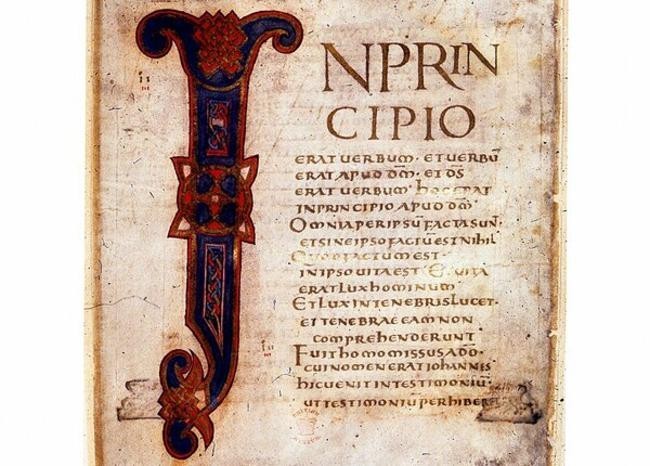 INPRIN
CIPIO
ERAT UERBUM · ET UERBŪ
ERAT APUD DM̄ · ET DS̄
ERAT UERBUM · HOC ERAT
IN PRINCIPIO APUD DM̄
OMNIA PER IPSŪ FACTA SUNT
ET SINE IPSO FACTŪ EST NIHIL
QUOD FACTUM EST ·
IN IPSO UITA EST ET UITA
ERAT LUX HOMINUM
ET LUX IN TENEBRIS LUCET ·
ET TENEBRAE EAM NON
COMPREHENDERUNT
FUIT HOMO MISSUS A DŌ ·
CUI NOMEN ERAT IOHANNIS
HIC UENIT IN TESTIMONIŪ ·
UT TESTIMONIŪ PERHIBERE